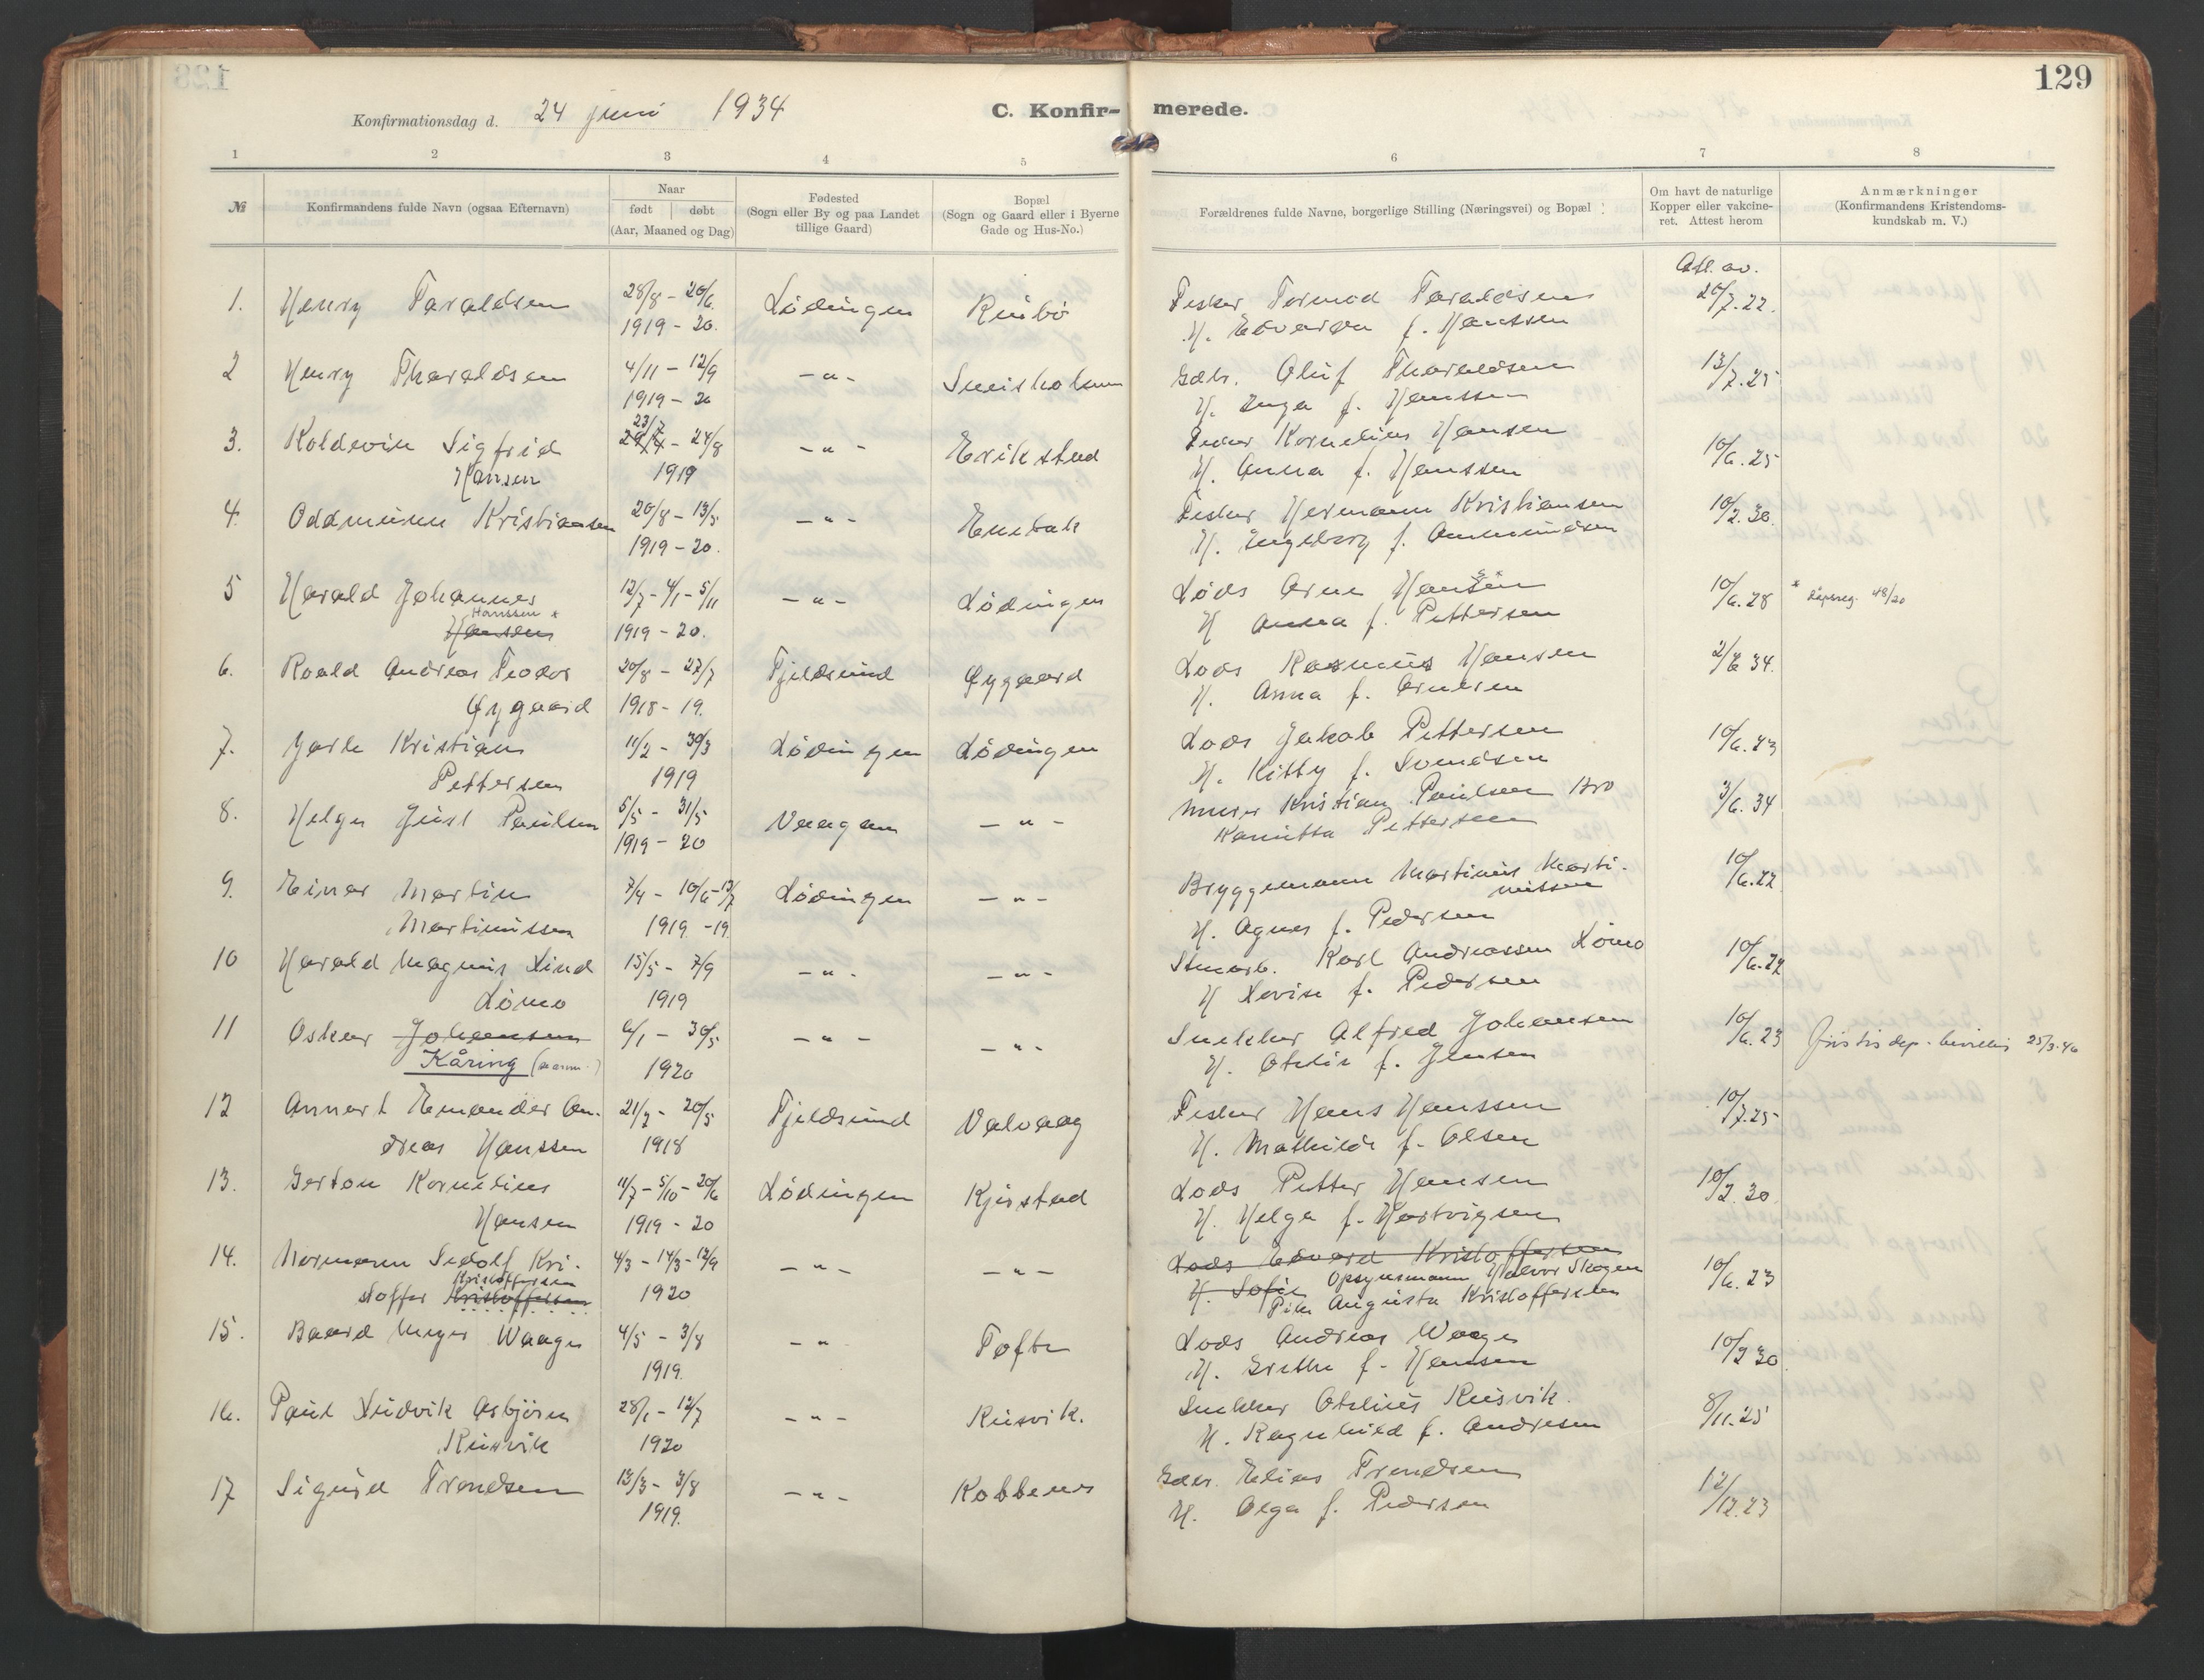 129
Konfirmationsdag d. 24 juni 1934
C. Konfir- merede.
1 2 3 4 5 6 7 8
№
Konfirmandens fulde Navn (ogsaa Efternavn)
Naar
født | døbt
(Aar, Maaned og Dag)
Fødested
(Sogn eller By og paa Landet
tillige Gaard)
Bopæl
(Sogn og Gaard eller i Byerne
Gade og Hus-No.)
Forældrenes fulde Navne, borgerlige Stilling (Næringsvei) og Bopæl
Om havt de naturlige
Kopper eller vakcine-
ret. Attest herom
Anmærkninger
(Konfirmandens Kristendoms-
kundskab m. V.)
Att. av.
1. Henry Taraldsen 28/8 - 20/6 Lødingen Rinbø Fisker Tormod Taraldsen 20/7.22.
1919 - 20. H. Edvarda f. Hantsen
2 Henry Tharaldsen 4/11 - 12/9 - " - Sneisholmen Gdbr. Oluf Tharaldsen 13/7.25
1919 - 20 H. Inga f. Hanssen
23/7
3. Koldevin Sigfrid - 24/8 - " - Erikstad Fisker Kornelius Hansen 10/6.25
Hansen 1919 H. Anna f. Hanssen
4. Oddmunn Kristiansen 20/8 - 13/5 - " - Enebak Fisker Hermann Kristiansen 10/2.30.
1919 - 20. H. Ingeborg f. Ammundsen
5 Harald Johannes 12/7 - 4/1 - 5/11 - " - Lødingen Lods Arne Hansen 10/6.28 * dåpsreg. 48/20
Hanssen *
Hansen 1919 - 20. H Anna f. Pettersen
6. Roald Andreas Teodor 20/8 - 27/7 Fjeldsund Øygaard Lods Rasmus Hansen 2/6 34.
Øygaard 1918 - 19. H. Anna f. Arntsen
7. Jarle Kristian 11/2 - 30/3 Lødingen Lødingen Lods Jakob Pettersen 10/6.23
Pettersen 1919 H. Kitty f. Svendsen
8. Helge Just Paulsen 5/5 - 31/5 Vaagan - " - Murer Kristian Paulsen 3/6.34
1919 - 20 Pettersen
9. Einar Martin 7/4 - 10/6 - 13/7 Lødingen - " - Bryggemann Martinus Marti- 10/6.22
nussen
Martinussen 1919 - 19 H. Agnes f. Pedersen
10 Harald Magnus Lind 15/5 - 7/9 - " - - " - Karl Andreassen Lømo 10/6.22
Lømo 1919 H Lovise f. Pedersen
11 Oskar Johansen 6/1 - 30/5 - " - - " - Snekker Alfred Johansen 10/6.23 Justisdep. bevilling 25/3.46
Kåring (se anm.) 1920 H. Otelie f. Jensen
12 Annart Emander An- 21/2 - 20/5 Fjeldsund Valvaag Fisker Hans Hanssen 10/7.25
dreas Hanssen 1918 H. Mathilde f. Olsen
13. Gerton Kornelius 11/7 - 5/10 - 20/6 Lødingen Kjerstad Lods Petter Hansen 10/2.30
Hansen 1919 - 20 H. Helga f. Hartvigsen
14. Normann Sedolf Kri- 4/3 - 14/3 - 12/9 - " - - " - Lods Edvard Kristoffersen 10/6.23
Kristoffersen
stoffer Kristoffersen 1920 H. Sofie Opsynsmann Halvor Skogen
Pike Augusta Kristoffersen
15. Baard Meyer Waage 4/5 - 3/8 - " Tofte Lods Andreas Waage 10/2 30
1919. H. Grethe f. Hansen
16. Paul Ludvik Asbjørn 28/1 - 12/7 - " - Rusvik. Snekker Otelius Rusvik. 8/11.25
Rusvik 1920 H. Ragnhild f. Andresen
17 Sigurd Trondsen 13/3 - 3/8 - " - Kobbenes Gdbr. Elias Trondsen 12/12.23
1919. H. Olga f. Pedersen